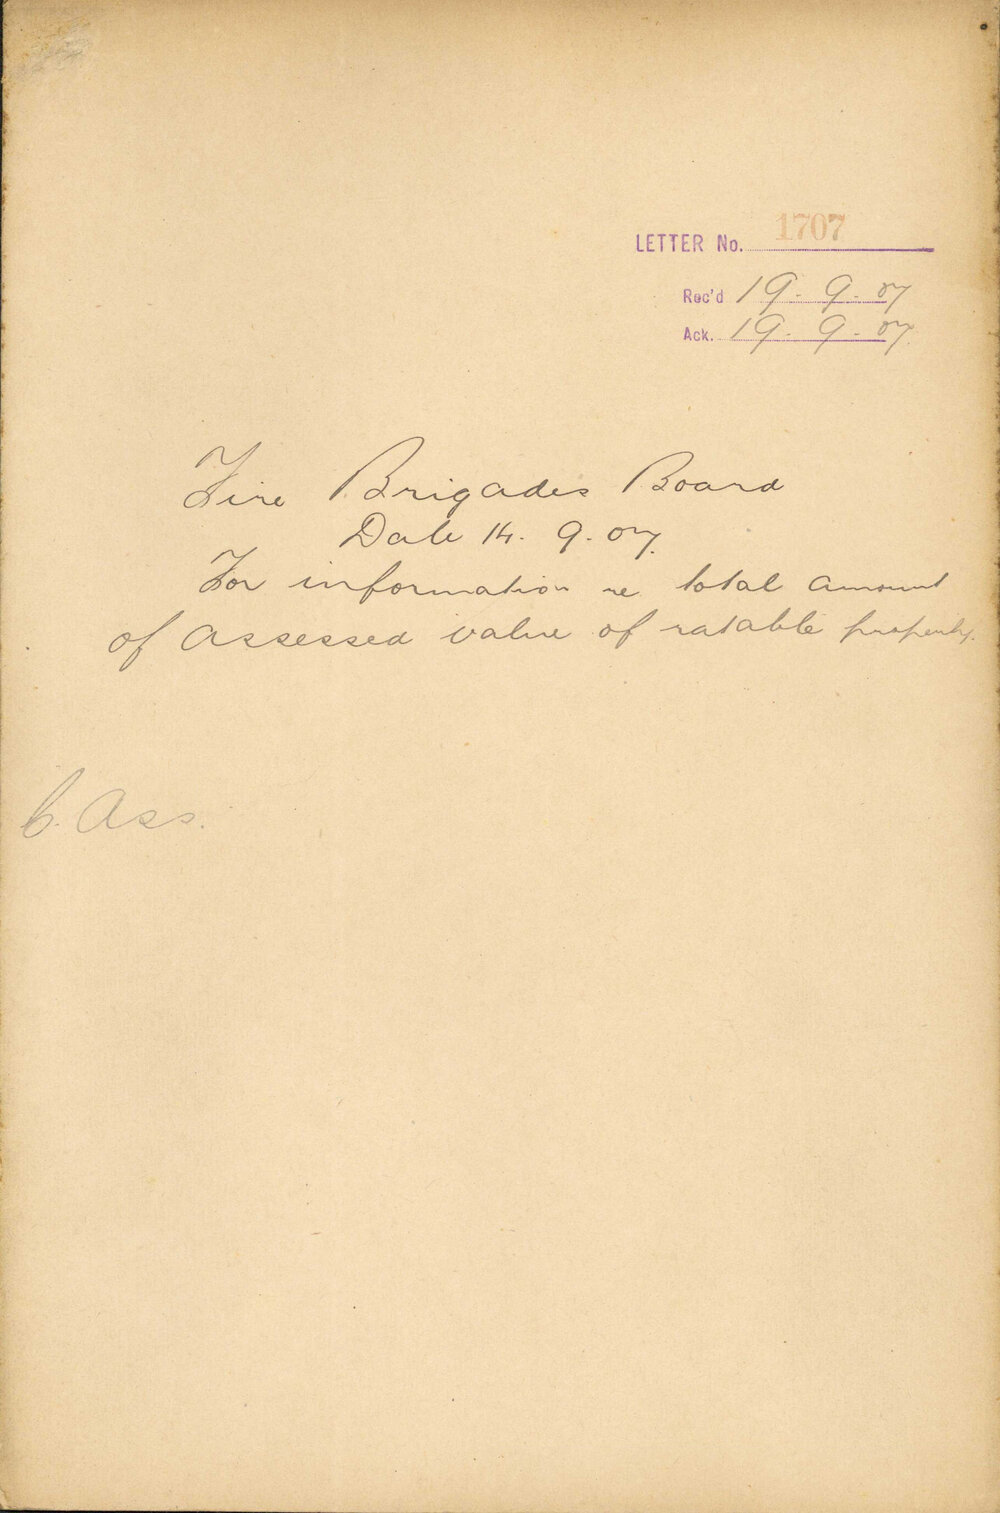 LETTER No. 1707
Rec'd 19. 9. 07
Ack. 19. 9. 07
Fire Brigades Board
Date 14. 9. 07.
For information re total amount
of assessed value of ratable property.
C. Ass.